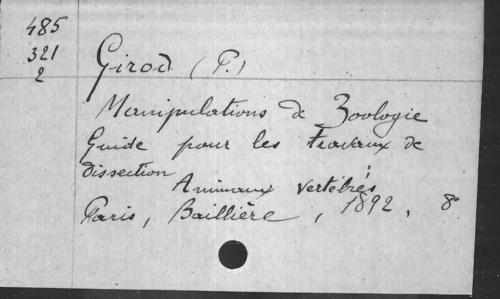 485
321
2
Girod (P.)
Manipulations de Zoologie
Guide pour les travaux de
dissection
Animaux vertébrés
Paris, Baillière, 1892, 8°